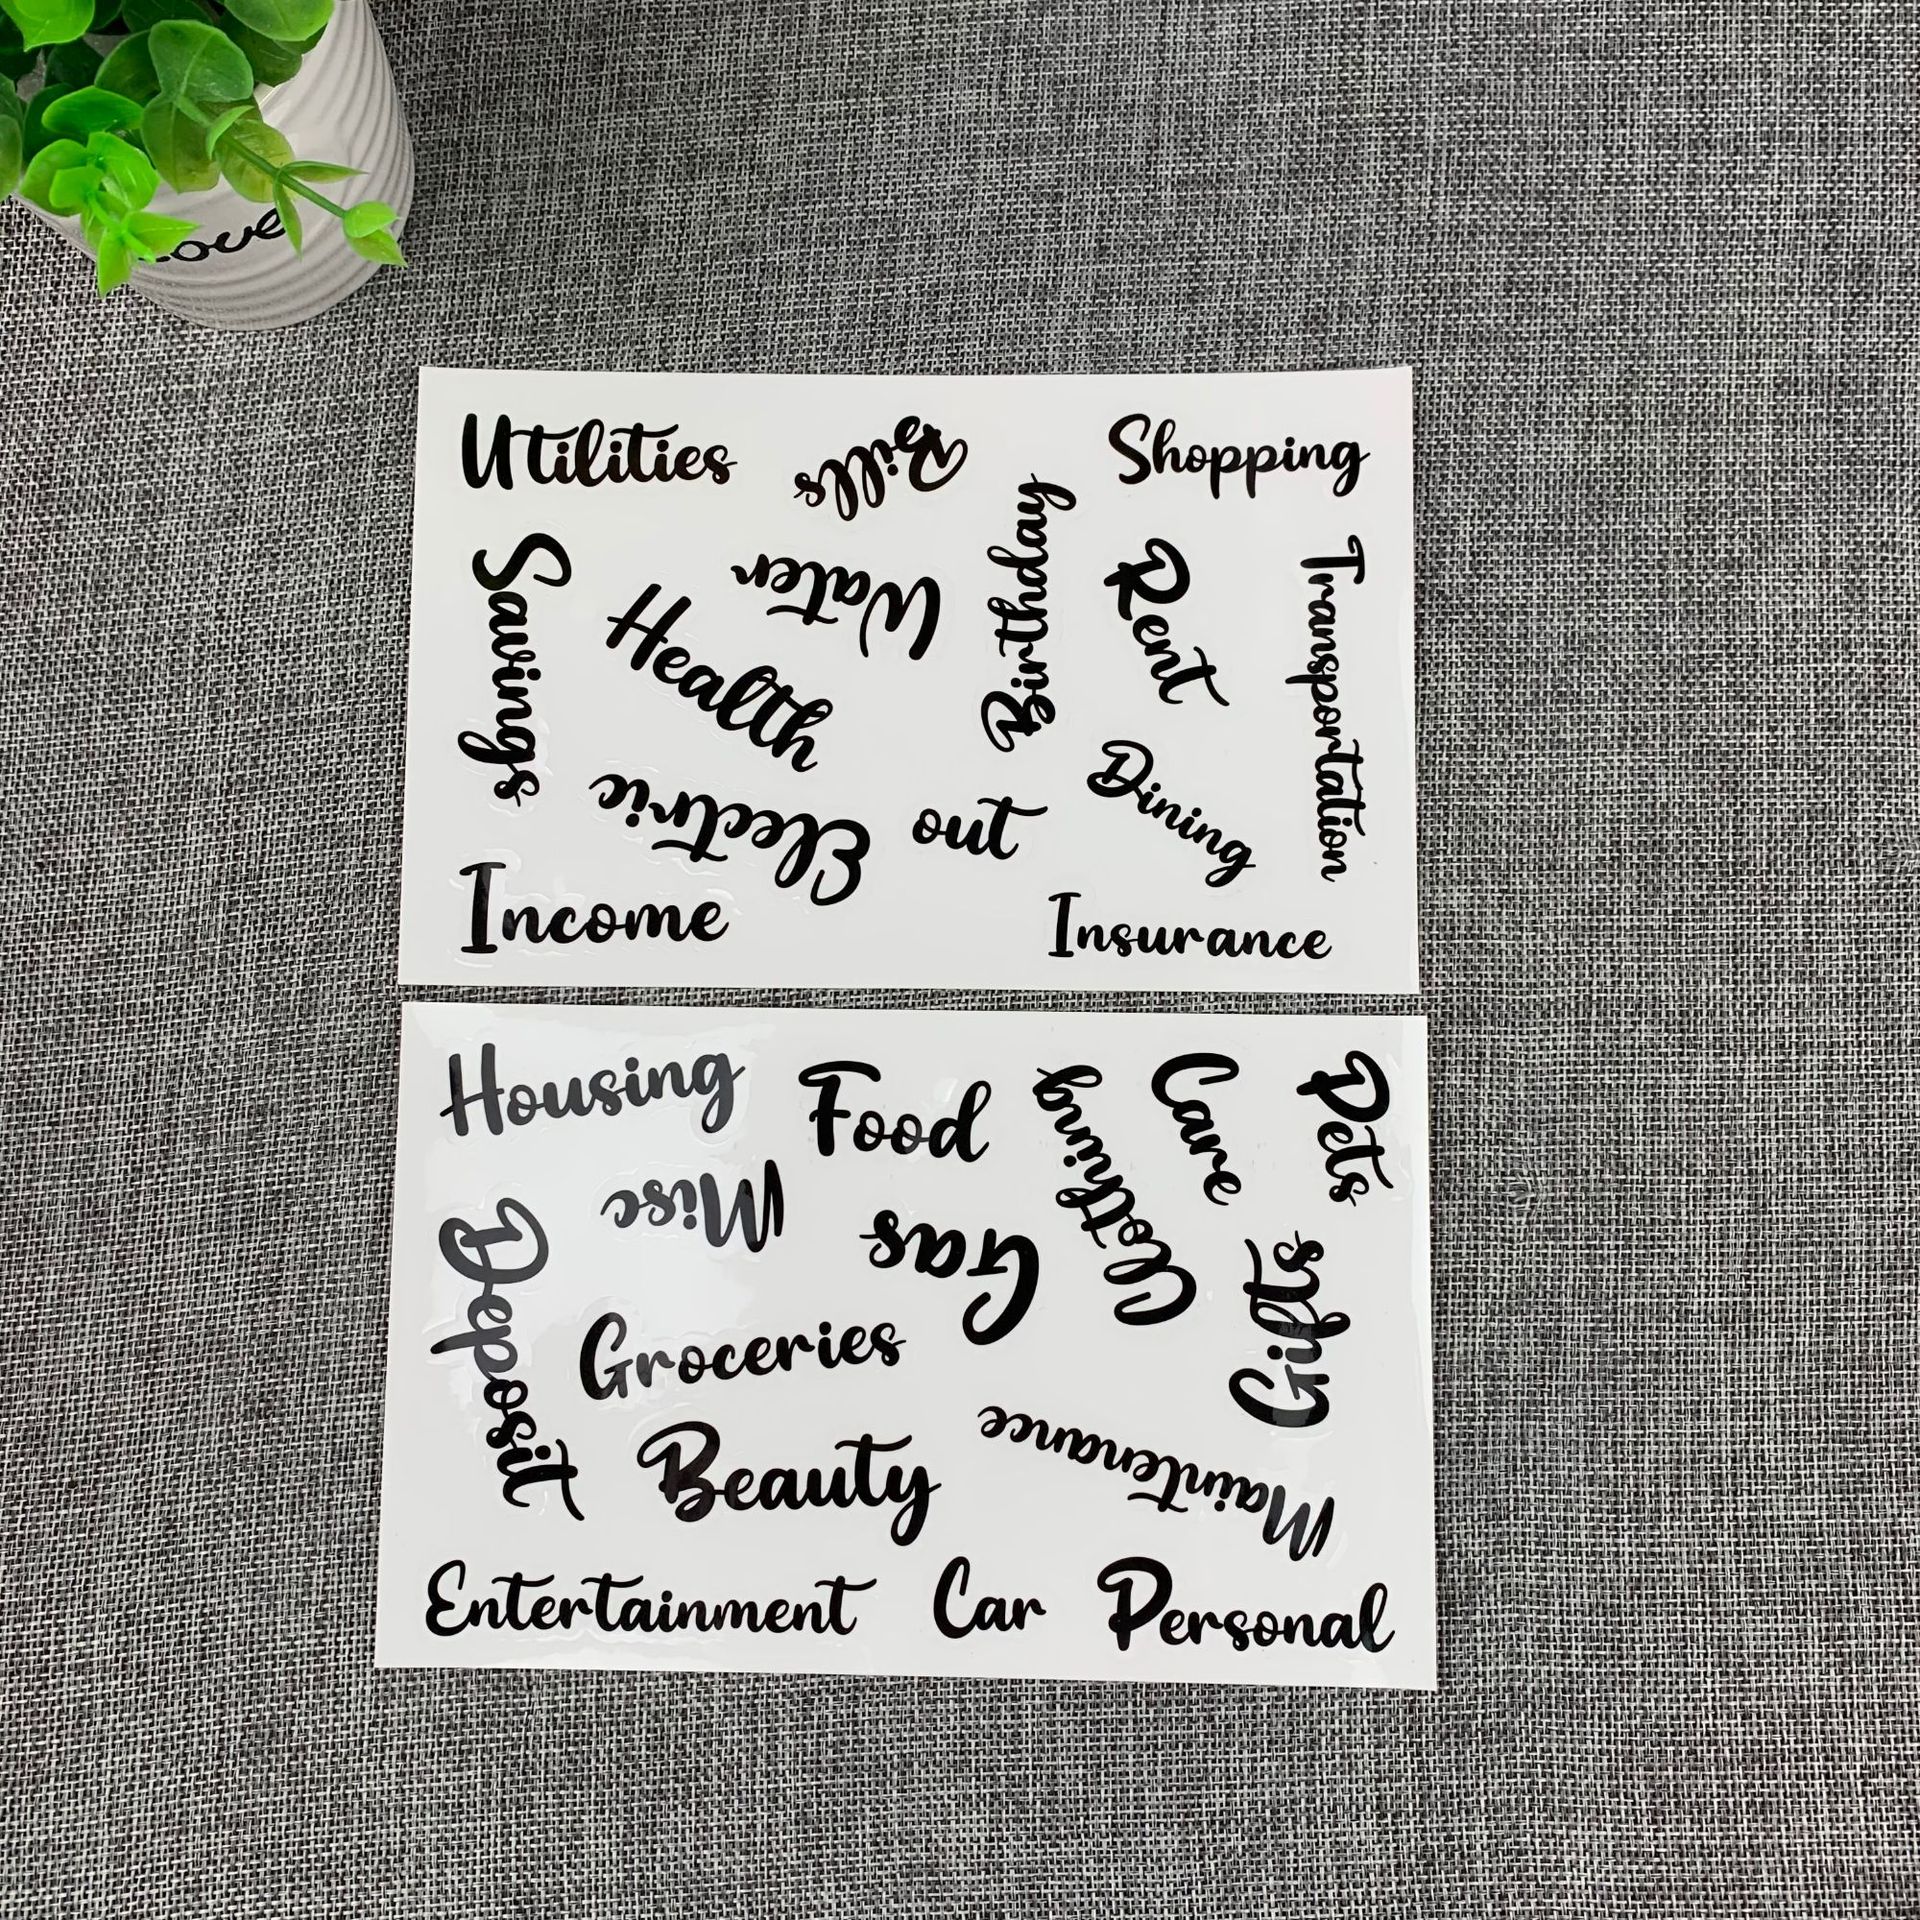 ove
Utilities
Bills
Shopping
Savings
Water
Birthday
Rent
Transportation
Health
Electric
out
Dining
Income
Insurance
Housing
Food
Clothing
Care
Pets
Misc
Deposit
Gas
Gifts
Groceries
Beauty
Maintenance
Entertainment
Car
Personal